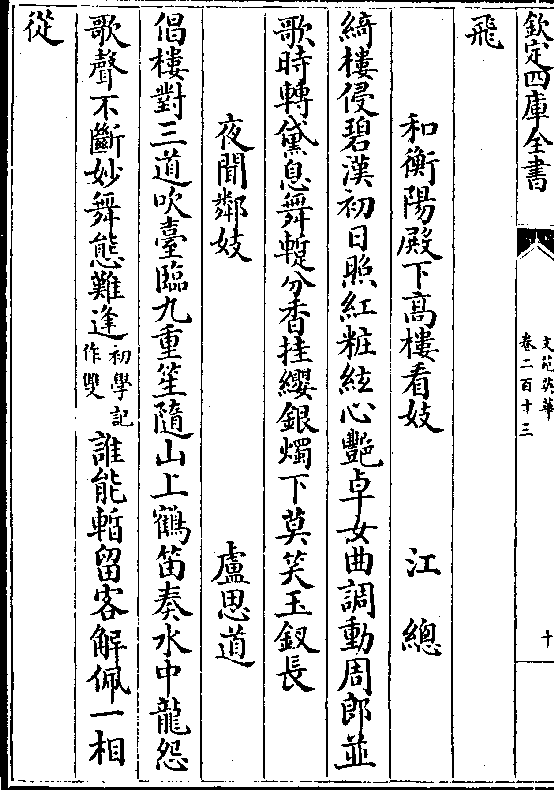 欽定四庫全書
文苑英華
卷二百十三
十
飛
和衡陽殿下高樓看妓　江總
綺樓侵碧漢初日照紅粧絃心艷卓女曲調動周郎並
歌時轉黛息舞暫分香挂纓銀燭下莫笑玉釵長
夜聞鄰妓　盧思道
倡樓對三道吹臺臨九重笙隨山上鶴笛奏水中龍怨
歌聲不斷妙舞態難逢初學記作雙誰能暫留客解佩一相
從